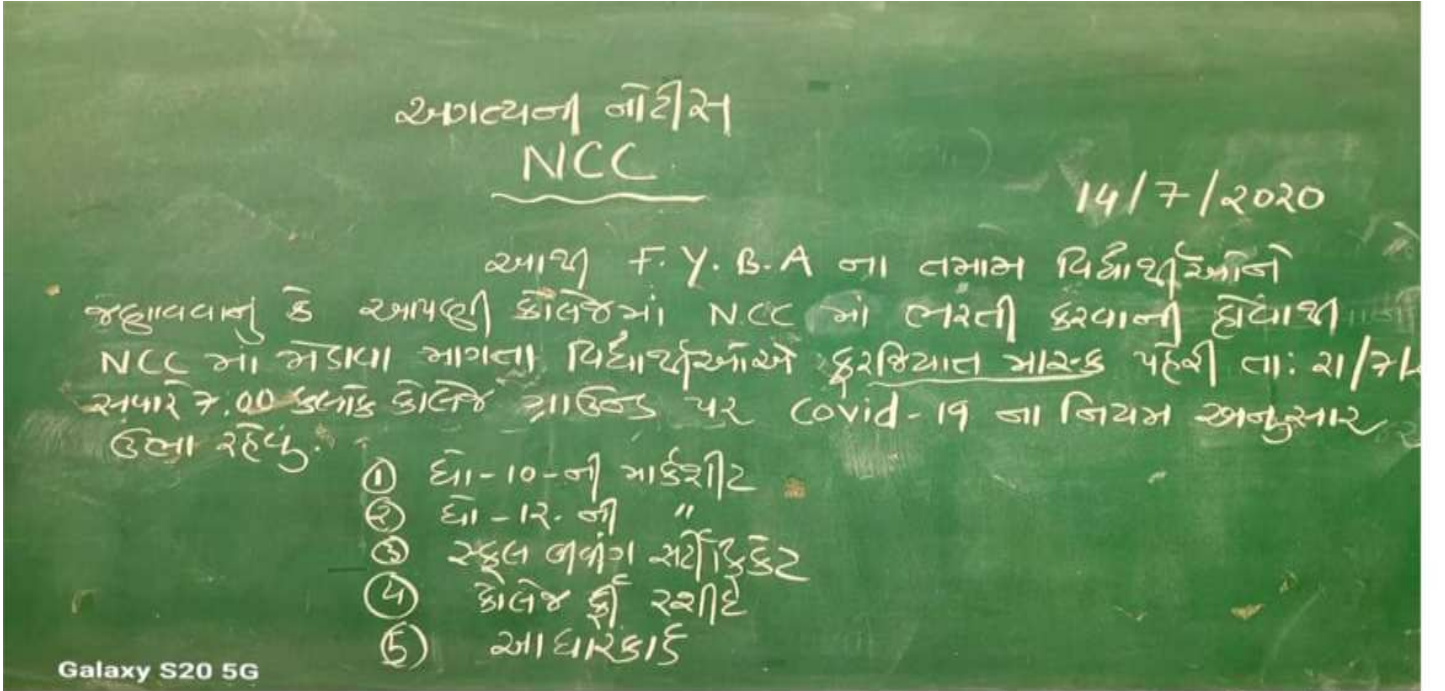 અગત્યની નોટીસ
NCC
14/7/૨૦૨૦
આથી F.Y.B.A ના તમામ વિદ્યાર્થીઓને
જણાવવાનું કે આપણી કોલેજમાં NCC માં ભરતી કરવાની હોવાથી
NCC માં જોડાવા માગતા વિદ્યાર્થીઓએ ફરજિયાત માસ્ક પહેરી તા: ૨૧/7/
સવારે 7.00 કલાકે કોલેજ ગ્રાઉન્ડ પર Covid-19 ના નિયમ અનુસાર
ઉભા રહેવું.
① ધો-10-ની માર્કશીટ
② ધો-1૨. ની "
③ સ્કુલ લીવીંગ સર્ટીફિકેટ
④ કોલેજ ફી રશીદ
⑤ આધારકાર્ડ
Galaxy S20 5G